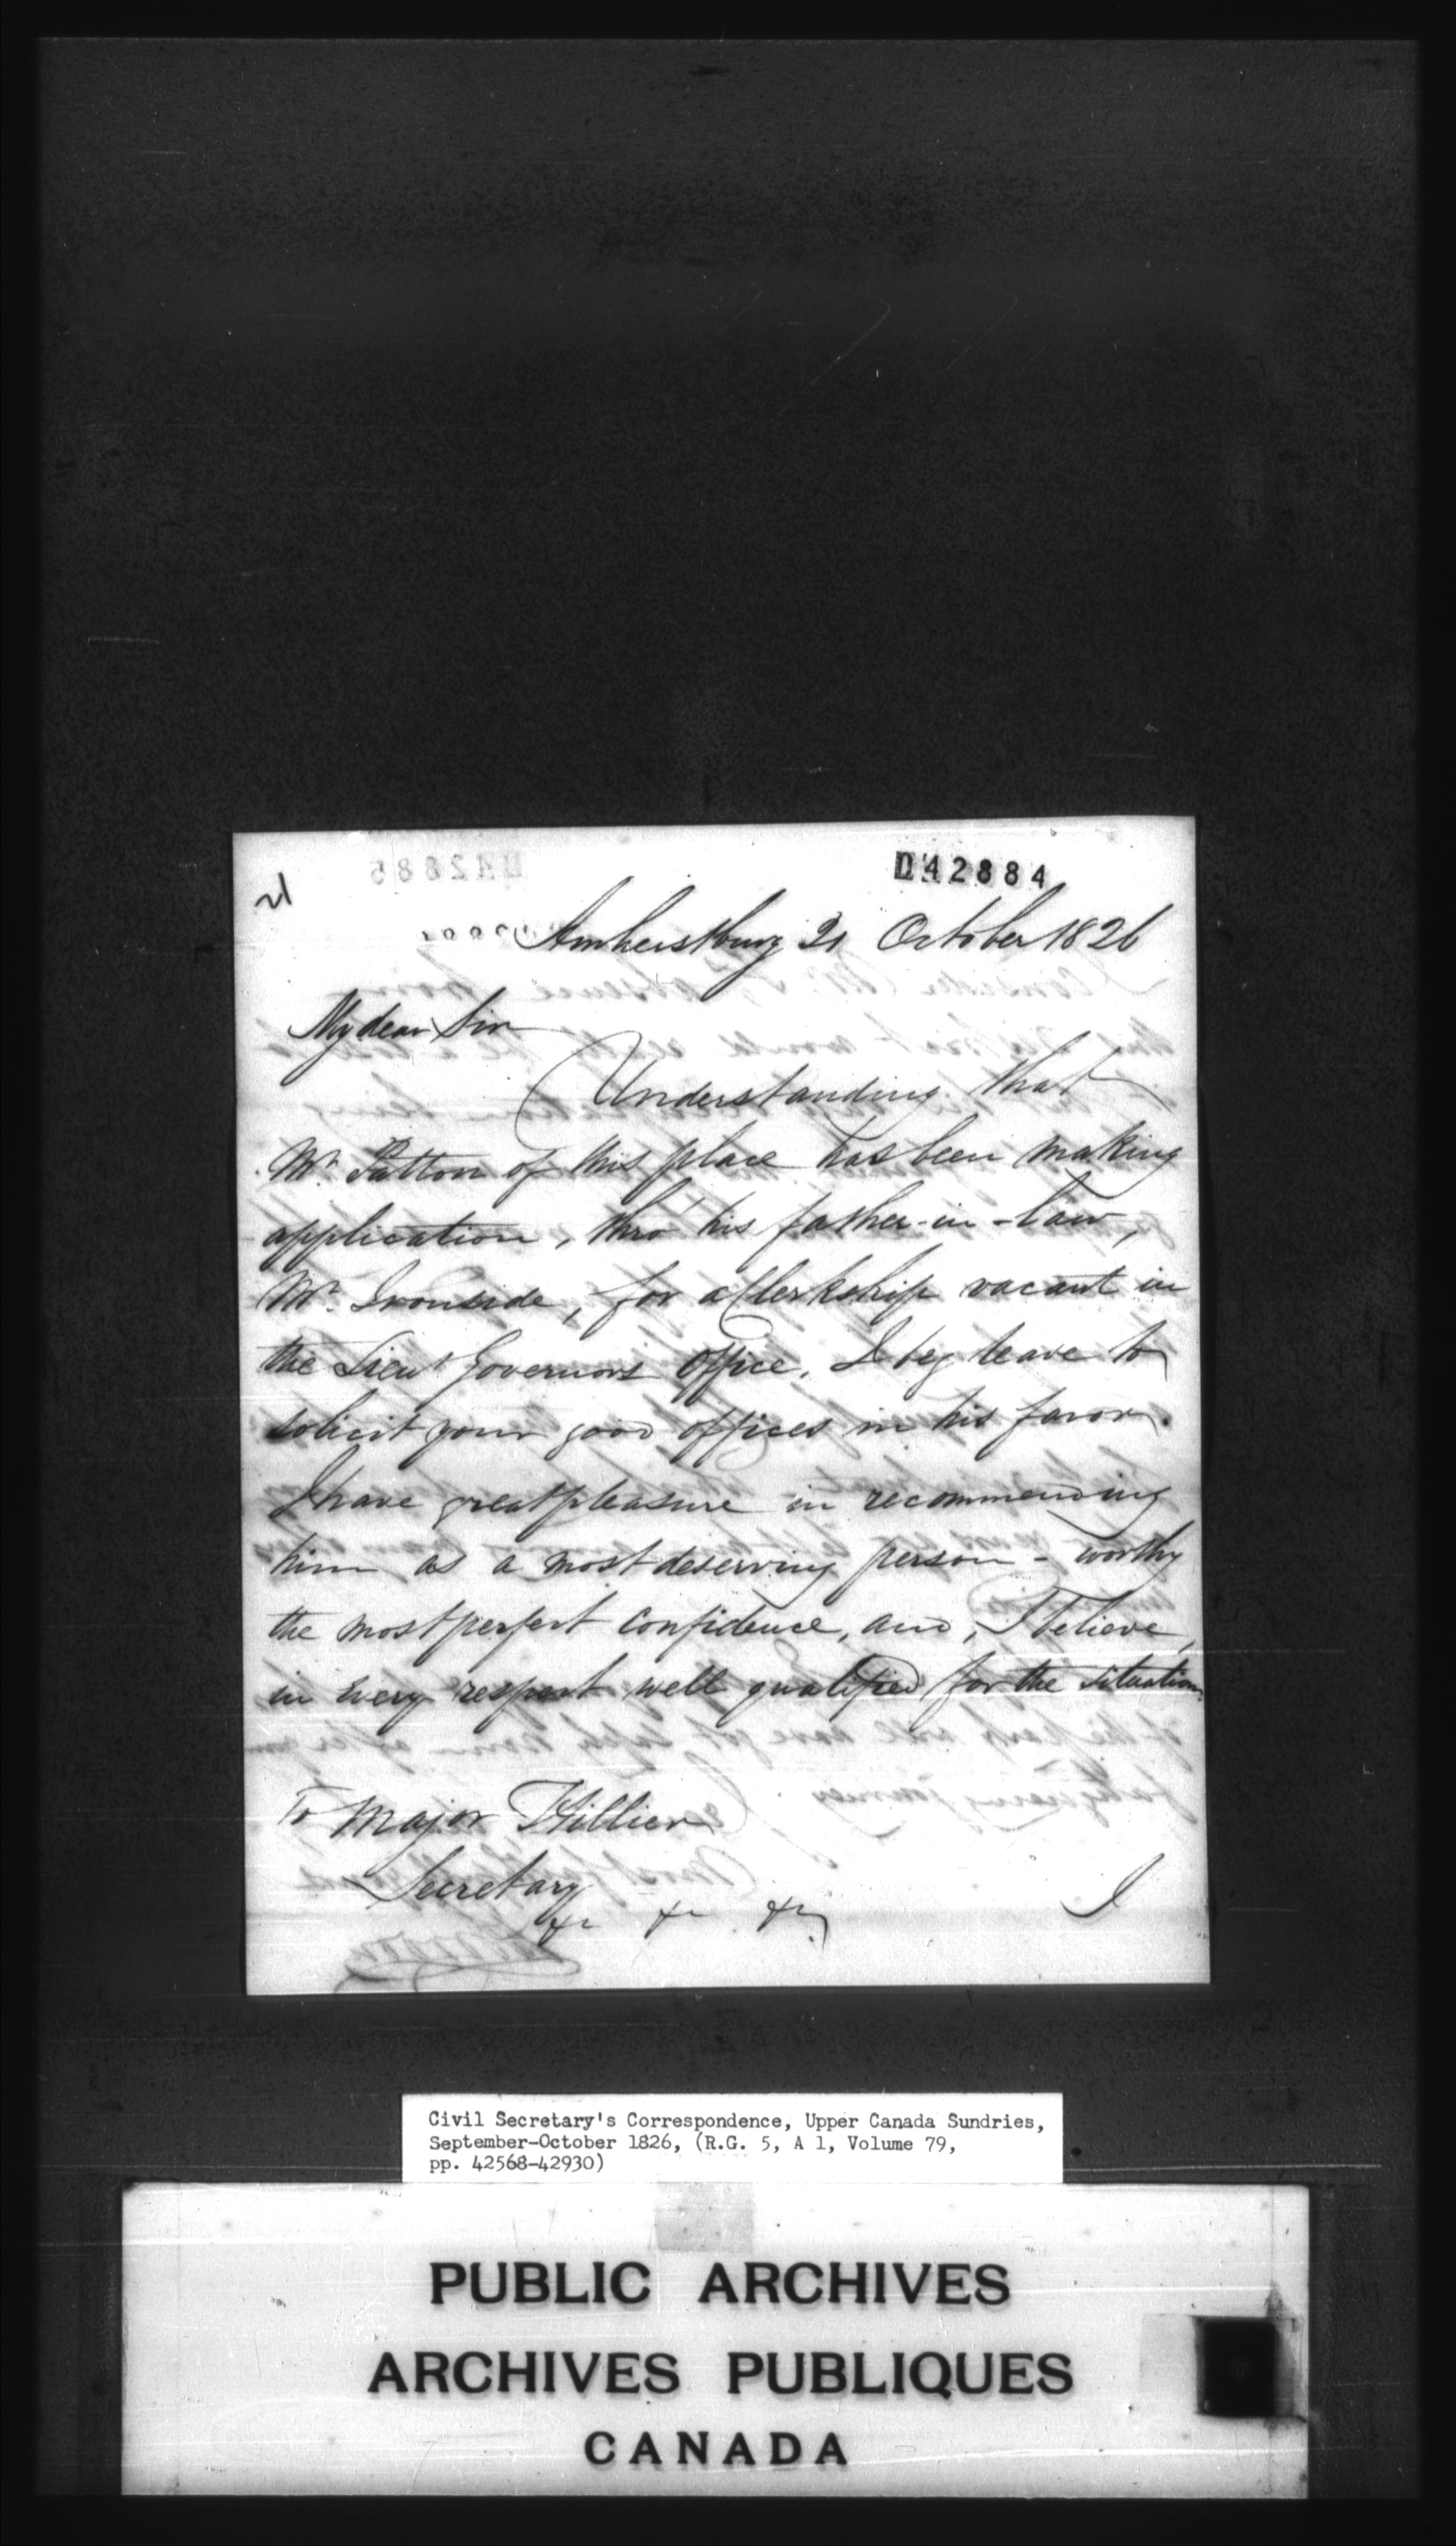 042884
Amherstburg 21 October 1826
My dear Sir
Understanding that
Mr. Patton of this place has been making
application, thro' his father-in-law,
Mr. Ironside, for a Clerkship vacant in
the Lieut Governors Office, I beg leave to
solicit your good offices in his favor.
I have great pleasure in recommending
him as a most deserving person - worthy
the most perfect confidence, and, I believe,
in every respect well qualified for the situation.
To Major Hillier
Secretary
&c &c &c
I
Civil Secretary's Correspondence, Upper Canada Sundries,
September-October 1826, (R.G. 5, A 1, Volume 79,
pp. 42568-42930)
PUBLIC ARCHIVES
ARCHIVES PUBLIQUES
CANADA